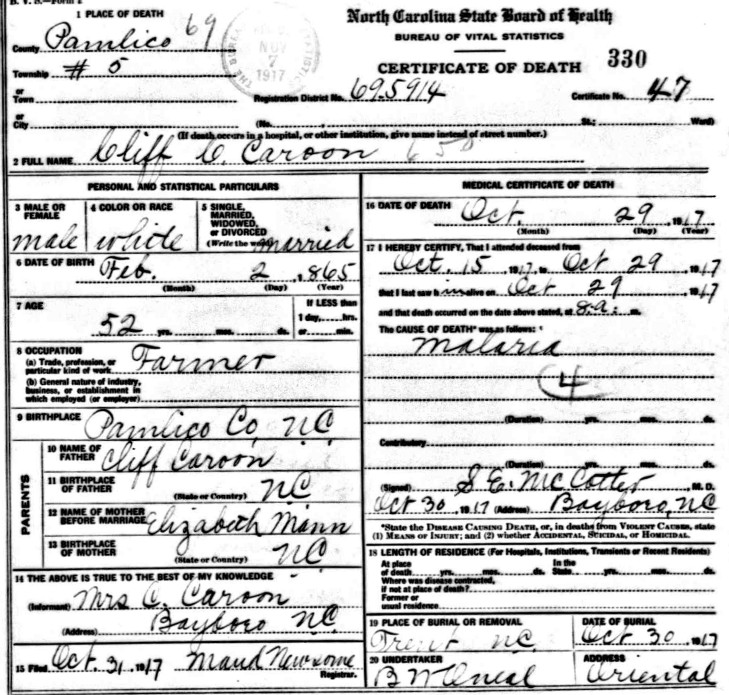 B. V. S.—Form
1 PLACE OF DEATH
69
County Pamlico
Township # 5
or
Town
or
City
THE BUREAU STATISTICS NOV 7 1917
North Carolina State Board of Health
BUREAU OF VITAL STATISTICS
CERTIFICATE OF DEATH 330
Registration District No. 695914 Certificate No. 47
(No. , St.; Ward)
(If death occurs in a hospital, or other institution, give name instead of street number.)
2 FULL NAME Cliff C. Caroon
PERSONAL AND STATISTICAL PARTICULARS
3 MALE OR FEMALE
male
4 COLOR OR RACE
white
5 SINGLE, MARRIED, WIDOWED, or DIVORCED
(Write the word) married
6 DATE OF BIRTH Feb. 2, 1865
(Month) (Day) (Year)
7 AGE
52 yrs. mos. ds.
If LESS than
1 day, hrs.
or min.
8 OCCUPATION
(a) Trade, profession, or
particular kind of work Farmer
(b) General nature of industry,
business, or establishment in
which employed (or employer)
9 BIRTHPLACE
Pamlico Co, N.C.
PARENTS
10 NAME OF FATHER Cliff Caroon
11 BIRTHPLACE OF FATHER
(State or Country) NC
12 NAME OF MOTHER BEFORE MARRIAGE Elizabeth Mann
13 BIRTHPLACE OF MOTHER
(State or Country) NC
14 THE ABOVE IS TRUE TO THE BEST OF MY KNOWLEDGE
(Informant) Mrs C. Caroon
(Address) Bayboro NC
15 Filed Oct. 31 1917 Maud Newsome
Registrar.
MEDICAL CERTIFICATE OF DEATH
16 DATE OF DEATH Oct. 29, 1917
(Month) (Day) (Year)
17 I HEREBY CERTIFY, That I attended deceased from
Oct. 15 1917, to Oct 29, 1917
that I last saw him alive on Oct 29, 1917
and that death occurred on the date above stated, at 8a. m.
The CAUSE OF DEATH* was as follows:
Malaria
4
(Duration) yrs. mos. ds.
Contributory
(Duration) yrs. mos. ds.
(Signed) S. E. McCotter, M. D.
Oct 30, 1917 (Address) Bayboro, NC
*State the DISEASE CAUSING DEATH, or, in deaths from VIOLENT CAUSES, state
(1) MEANS OR INJURY; and (2) whether ACCIDENTAL, SUICIDAL, OR HOMICIDAL.
18 LENGTH OF RESIDENCE (For Hospitals, Institutions, Transients or Recent Residents)
At place of death yrs. mos. ds. In the State yrs. mos. ds.
Where was disease contracted,
if not at place of death?
Former or
usual residence
19 PLACE OF BURIAL OR REMOVAL
Trent NC.
DATE OF BURIAL
Oct 30, 1917
20 UNDERTAKER
B M Oneal
ADDRESS
Oriental